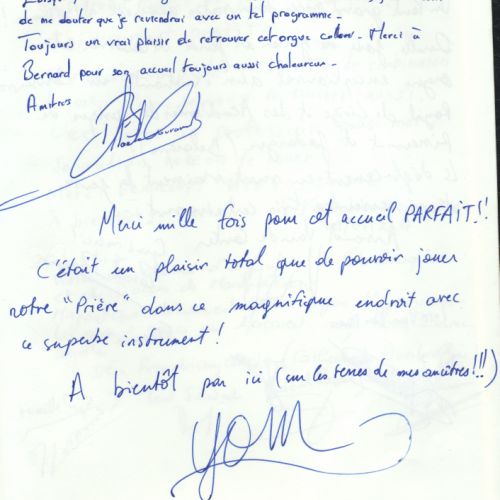 de me douter que je reviendrai avec un tel programme.
Toujours un vrai plaisir de retrouver cet orgue Merci à
Bernard pour son accueil toujours aussi chaleureux.
Amitiés
Merci mille fois pour cet accueil PARFAIT!!
C'était un plaisir total que de pouvoir jouer
notre "Prière" dans ce magnifique endroit avec
ce superbe instrument!
A bientôt par ici (sur les terres de mes ancêtres!!!)
YOM